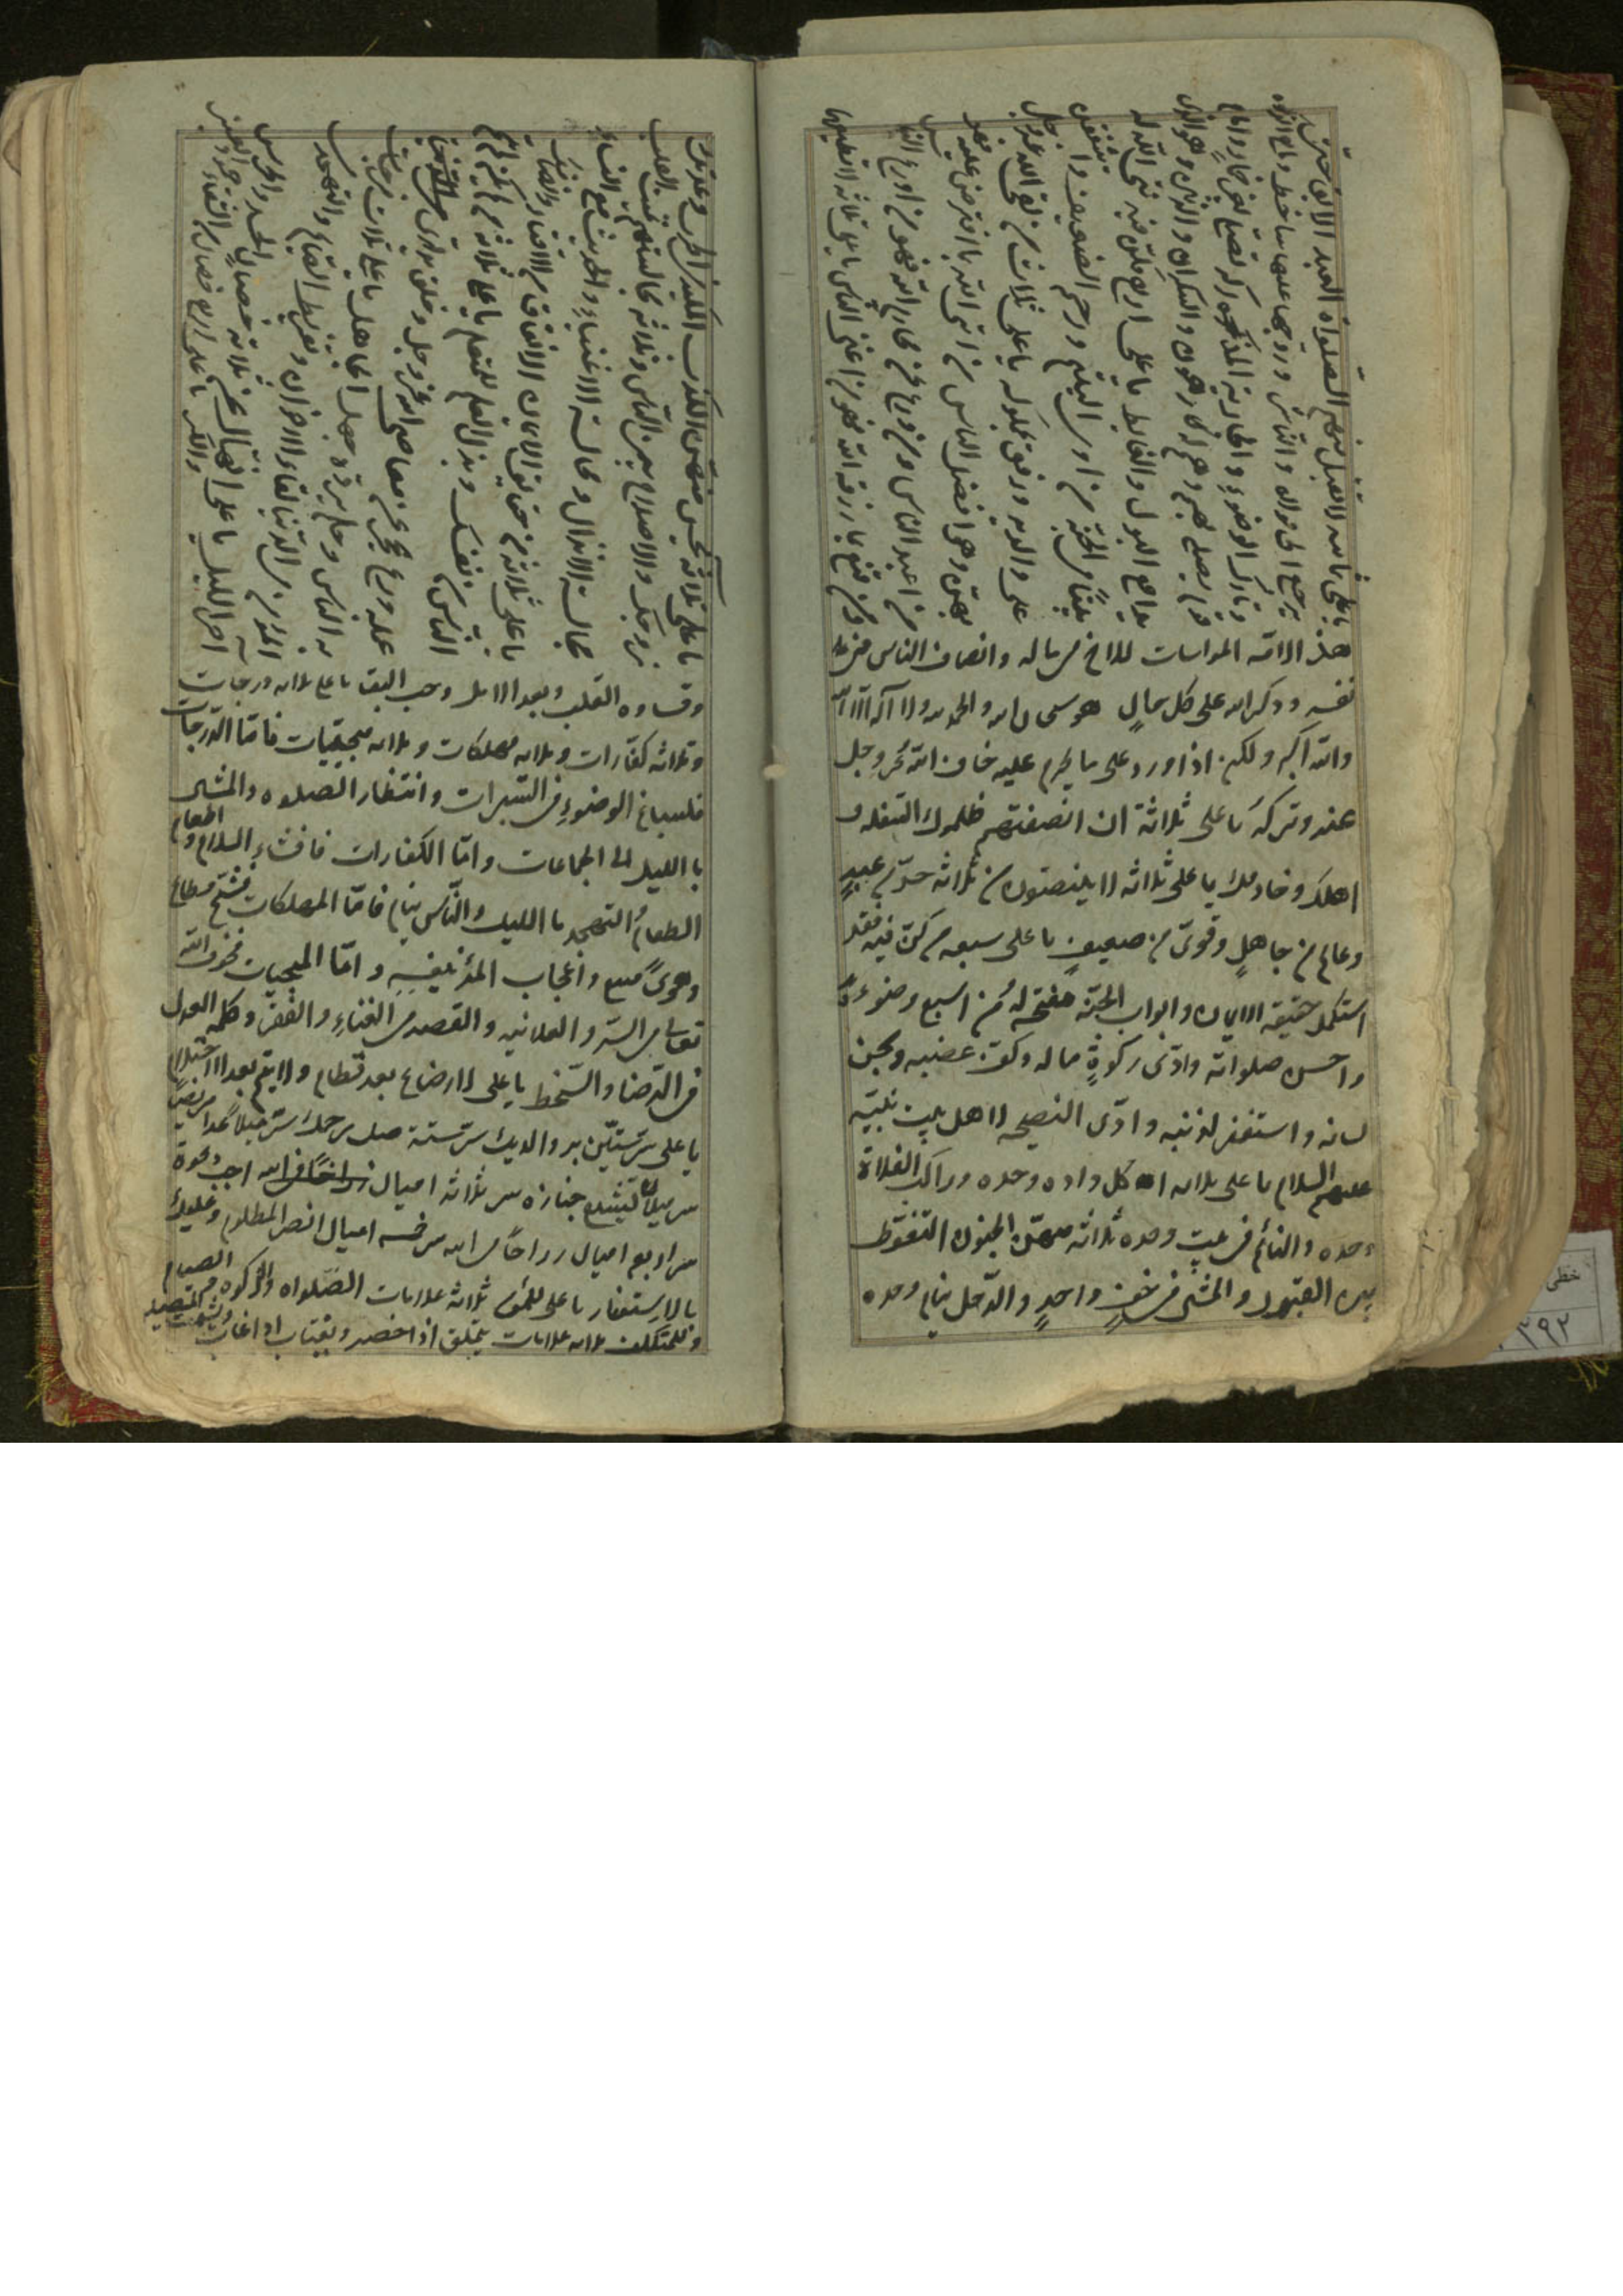 يا علي ثمانيه لا تقبل منهم الصلواة العبد الآبق حتى
يرجع الى مولاه والناشز وزوجها عليها ساخط ومانع الزكوة
وتارك الوضوء والجارية المدركه تصلي بغير خمار وامام
قوم يصلي بهم وهم له كارهون والسكران والزبين وهو الذي
يدافع البول والغايط يا علي اربع من كن فيه بنى الله له
بيتاً في الجنة من اوى اليتيم ورحم الضعيف واشفق
على والديه ورفق بمملوكه يا علي ثلاث من لقى الله عز وجل
بهن وهو افضل الناس من اتى الله بما افترض عليه فهو
من اعبد الناس ومن ورع عن محارم الله فهو من اورع الناس
ومن قنع بما رزقه الله فهو من اغنى الناس يا علي ثلاثه لا تطيقها
هذه الامّه المواسات للاخ في ماله وانصاف الناس من
نفسه وذكر الله على كل حالٍ هو سبحان الله والحمد لله ولا اله الا الله
والله اكبر ولكن اذا ورد على ما يحرم عليه خاف الله عز وجل
عنده وتركه يا على ثلاثة ان انصفتهم ظلموك السفله و
اهلك وخادمك يا على ثلاثه لا ينصفون من ثلاثه حرّ من عبدٍ
وعالم من جاهلٍ وقوىّ من ضعيفٍ يا على سبعه من كنّ فيه فقد
استكمل حقيقه الايمان وابواب الجنّه مفتحه له من اسبغ وضوءه
واحسن صلواته وادّى زكوةٍ ماله وكفّ غضبه وسجن
لسانه واستغفر لذنبه وادّى النصيحه لاهل بيت نبيّه
عليهم السلام يا على ثلاثه اكل زاده وحده وراكب الفلاة
وحده والنائم في بيت وحده ثلاثه منهنّ الجنون التغوّط
بين القبور والمشى في خفٍ واحدٍ والرّجل ينام وحده
يا على ثلاثه يحسن فيهن الكذب المكيدة في الحرب وعدتك
زوجتك والاصلاح بين الناس وثلاثه مجالستهم تميت القلب
مجالسة الانذال ومجالسة الاغنياء والحديث مع النساء
يا على ثلاثه من حقايق الايمان الانفاق من الاقتار وانصاف
الناس من نفسك وبذل العلم للمتعلم يا على ثلاثه من لم يكن فيه لم يتم
عمله ورع يحجزه عن معاصى الله عز وجل وخلق يدارى
به الناس وحلم يرد به جهل الجاهل يا على ثلاث فرحات
للمؤمن في الدّنيا لقاء الاخوان وتفطير الصيام والتهجد
اخر الليل يا على انهاك عن ثلاثه خصالٍ الحسد والحرص
والكبر يا على اربع خصال من الشقاء جمود العين
وقساوه القلب وبعد الامل وحب البقا يا علي ثلاثه درجات
وثلاثه كفّارات وثلاثه مهلكات وثلاثه منجيات فامّا الدّرجات
فاسباغ الوضوءِ في السّبرات وانتظار الصلوه والمشى
بالليل الى الجماعات وامّا الكفارات فافشاءِ السلام واطعام
الطعام والتهجد بالليل والنّاس نيام فامّا المهلكات فشحّ مطاع
وهوىً متبع واعجاب المرء بنفسه وامّا المنجيات فخوف الله
تعالى في السّر والعلانيه والقصد في الغناءِ والفقر وكلمه العدل
في الرّضا والسّخط يا على لا رضاع بعد فطام ولا يتم بعد احتلام
يا على سر سنتين بر والديك سر سنة صل رحمك سر ميلاً عد مريضاً
سر ميلان تشيّع جنازه سر ثلاثه اميال زر اخاً في الله اجب دعوة
سر اربع اميال زر اخاً في الله سر خمسه اميال انصر المظلوم وعليك
بالاستغفار يا على للمؤمن ثلاثة علامات الصّلواه والزكوه والصيام
وللمتكلف ثلاثه علامات يتملق اذا حضر ويغتاب اذا غاب ويشمت بالمصيبه
خطی
٣٩٢